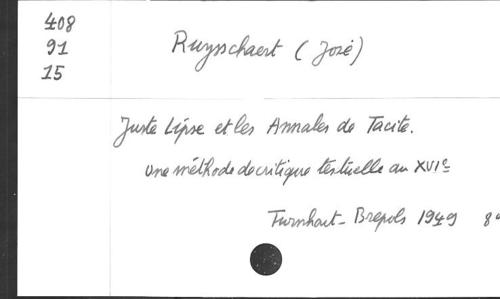 408
91
15
Ruysschaert (José)
Juste Lipse et les Annales de Tacite.
une méthode de critique textuelle au XVIe
Turnhout - Brepols 1949 8°